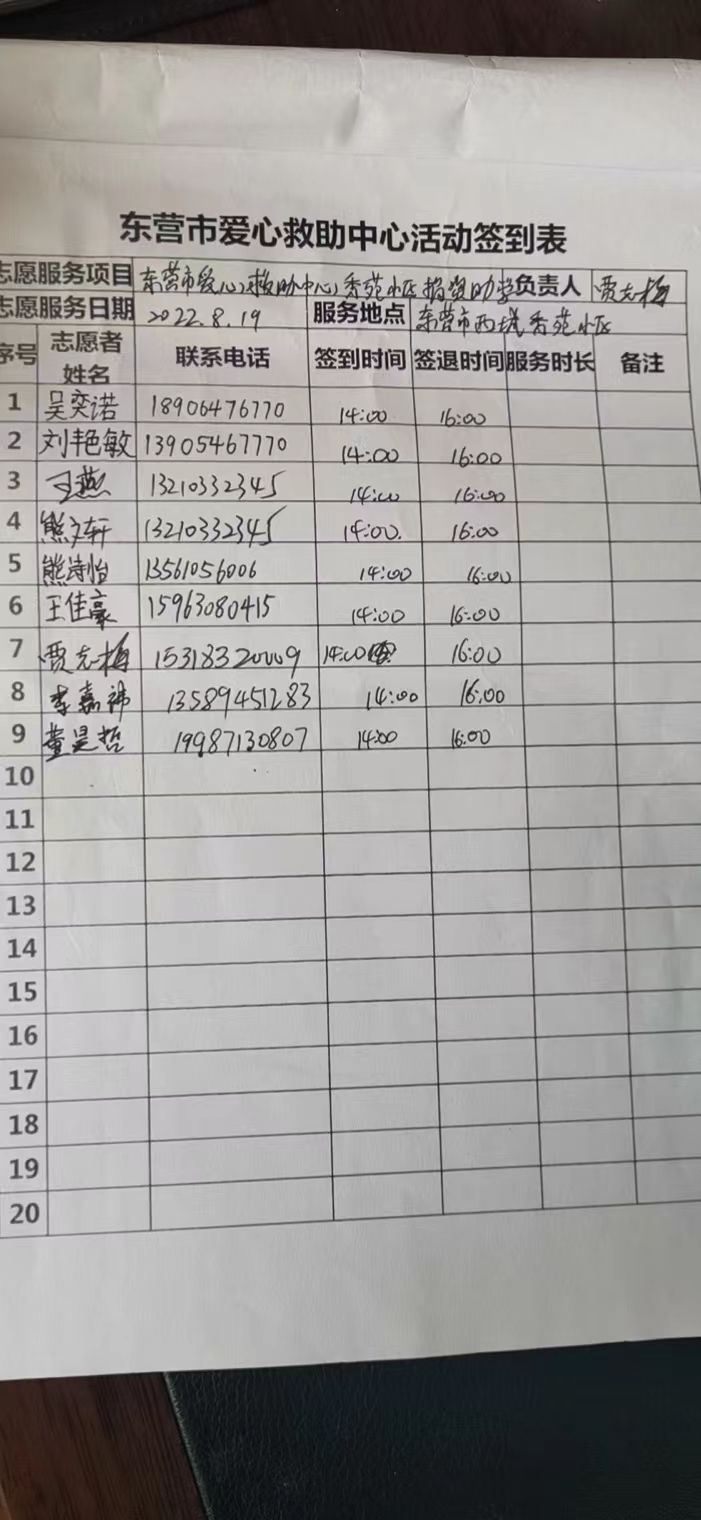 东营市爱心救助中心活动签到表
志愿服务项目 东营市爱心救助中心秀苑小区捐资助学 负责人 贾志梅
志愿服务日期 2022.8.19 服务地点 东营市西城秀苑小区
序号 志愿者姓名 联系电话 签到时间 签退时间 服务时长 备注
1 吴奕诺 18906476770 14:00 16:00
2 刘艳敏 13905467770 14:00 16:00
3 王燕 13210332345 14:00 16:00
4 熊文轩 13210332345 14:00. 16:00
5 熊诗怡 13561056006 14:00 16:00
6 王佳豪 15963080415 14:00 16:00
7 贾志梅 15318320009 14:00 16:00
8 李嘉祎 13589451283 14:00 16:00
9 董昊哲 19987130807 14:00 16:00
10
11
12
13
14
15
16
17
18
19
20